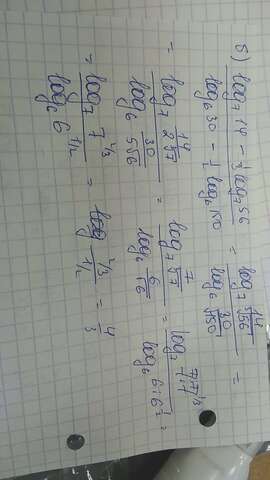 5) (log₇ 14 − 1/3 log₇ 56) / (log₆ 30 − 1/2 log₆ 150) = (log₇ 14/∛56) / (log₆ 30/√150) =
= (log₇ 14/2∛7) / (log₆ 30/5√6) = (log₇ 7/∛7) / (log₆ 6/√6) = (log₇ 7:7^1/3) / (log₆ 6:6^1/2) =
= (log₇ 7^2/3) / (log₆ 6^1/2) = (2/3) / (1/2) = 4/3